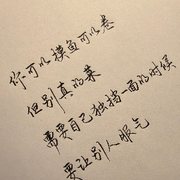 你可以摸鱼可以卷
但别真的菜
需要自己独挡一面的时候
要让别人服气